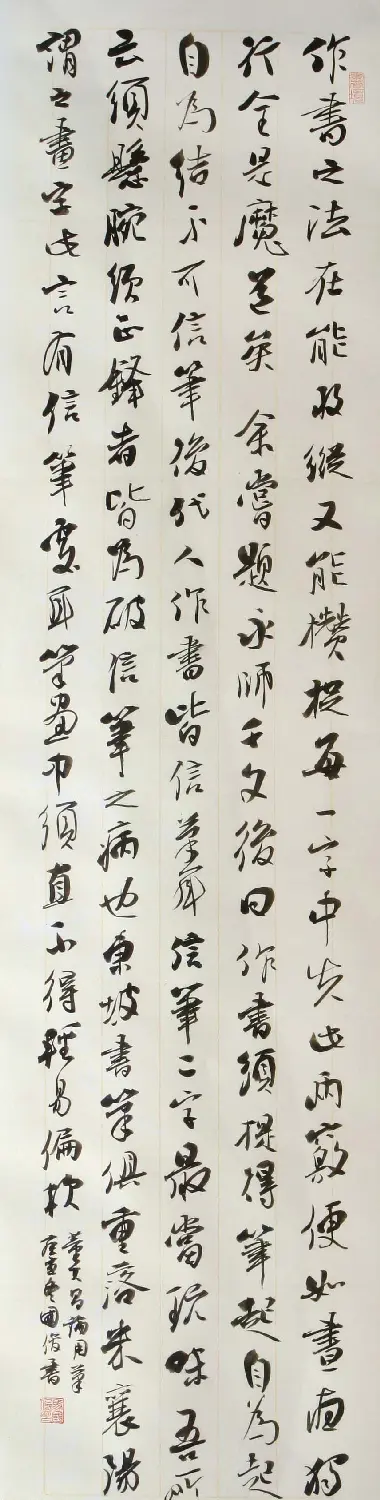 作書之法在能放縱又能攢捉每一字中失此兩竅便如晝夜獨
行全是魔道矣余嘗題永師千文後曰作書須提得筆起自為起
自為結不可信筆後代人作書皆信筆耳信筆二字最當玩味吾所
云須懸腕須正鋒者皆為破信筆之病也東坡書筆俱重落米襄陽
謂之畫字此言有信筆處耳筆畫中須直不得輕易偏軟
董其昌論用筆
冬國俊書